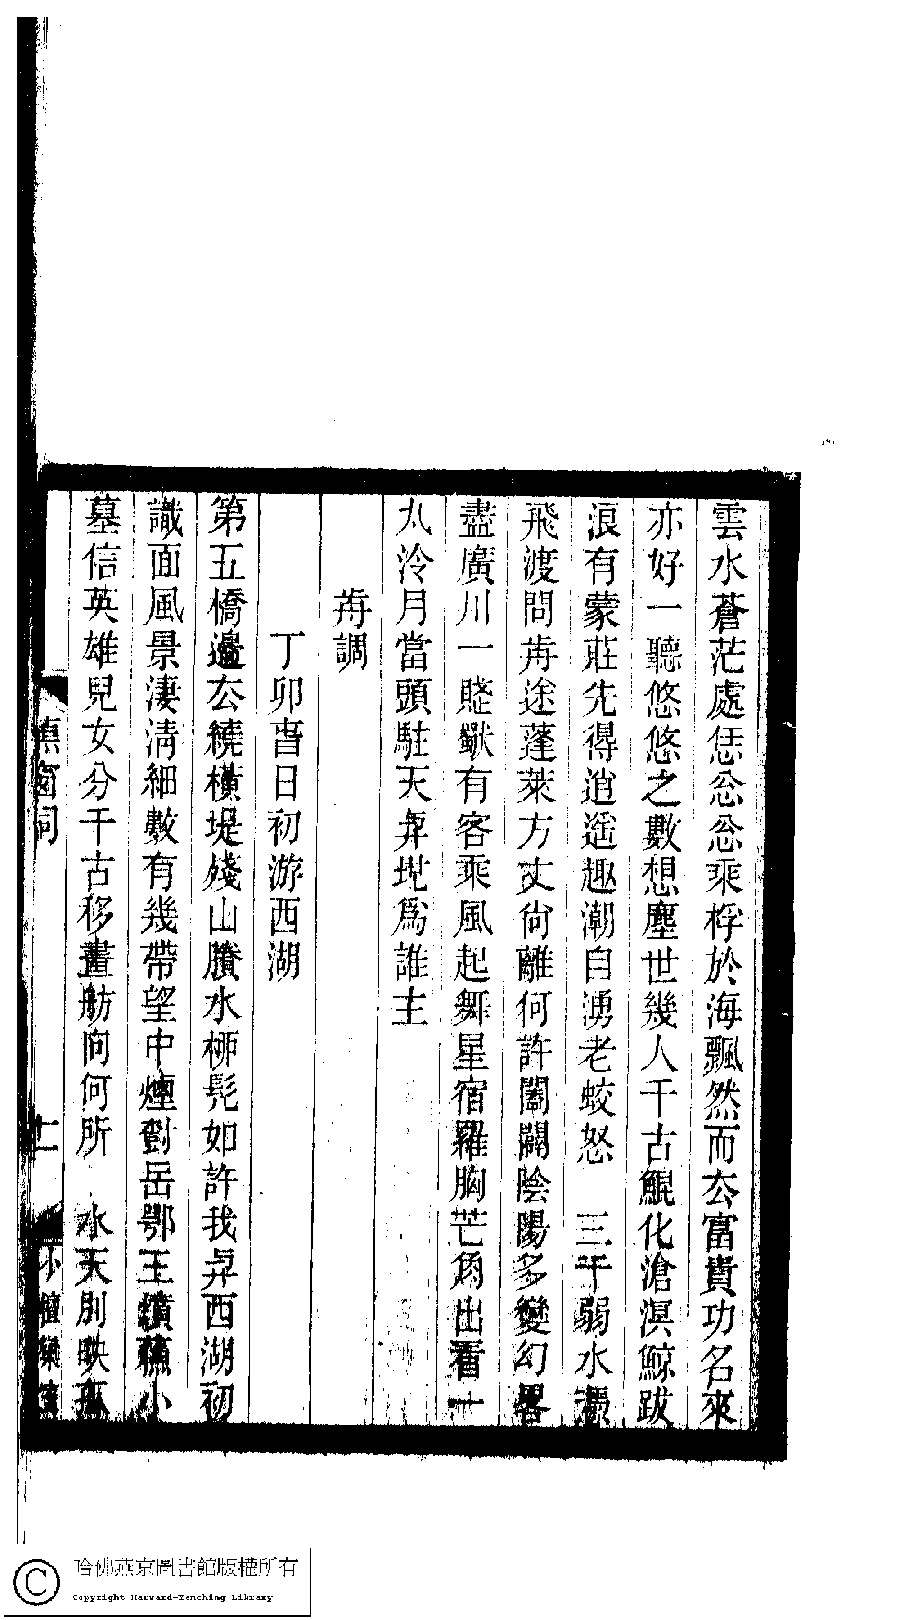 雲水蒼茫處恁忩忩乘桴於海飄然而厺富貴功名來
亦好一聽悠悠之數想塵世幾人千古鯤化滄溟鯨跋
浪有蒙莊先得逍遥趣潮自湧老蛟怒　三千弱水憑
飛渡問歬途蓬萊方丈尙離何許闔闢陰陽多變幻畧
盡廣川一賤獸有客乘風起舞星宿羅胸芒角出看一
丸冷月當頭駐天與地爲誰主
歬調
丁卯春日初游西湖
第五橋邊厺繞橫堤殘山賸水柳髡如許我與西湖初
識面風景淒清細數有幾帶望中煙對岳鄂王墳蘇小
墓信英雄兒女分千古移畫舫向何所　水天別映孤
窗詞
十一
小檀欒
哈佛燕京圖書館版權所有
Copyright Harvard-Yenching Library